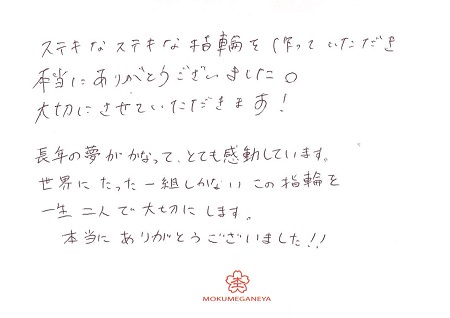 ステキなステキな指輪を作っていただき
本当にありがとうございました。
大切にさせていただきます!
長年の夢がかなって、とても感動しています。
世界にたった一組しかないこの指輪を
一生二人で大切にします。
本当にありがとうございました!!
MOKUMEGANEYA